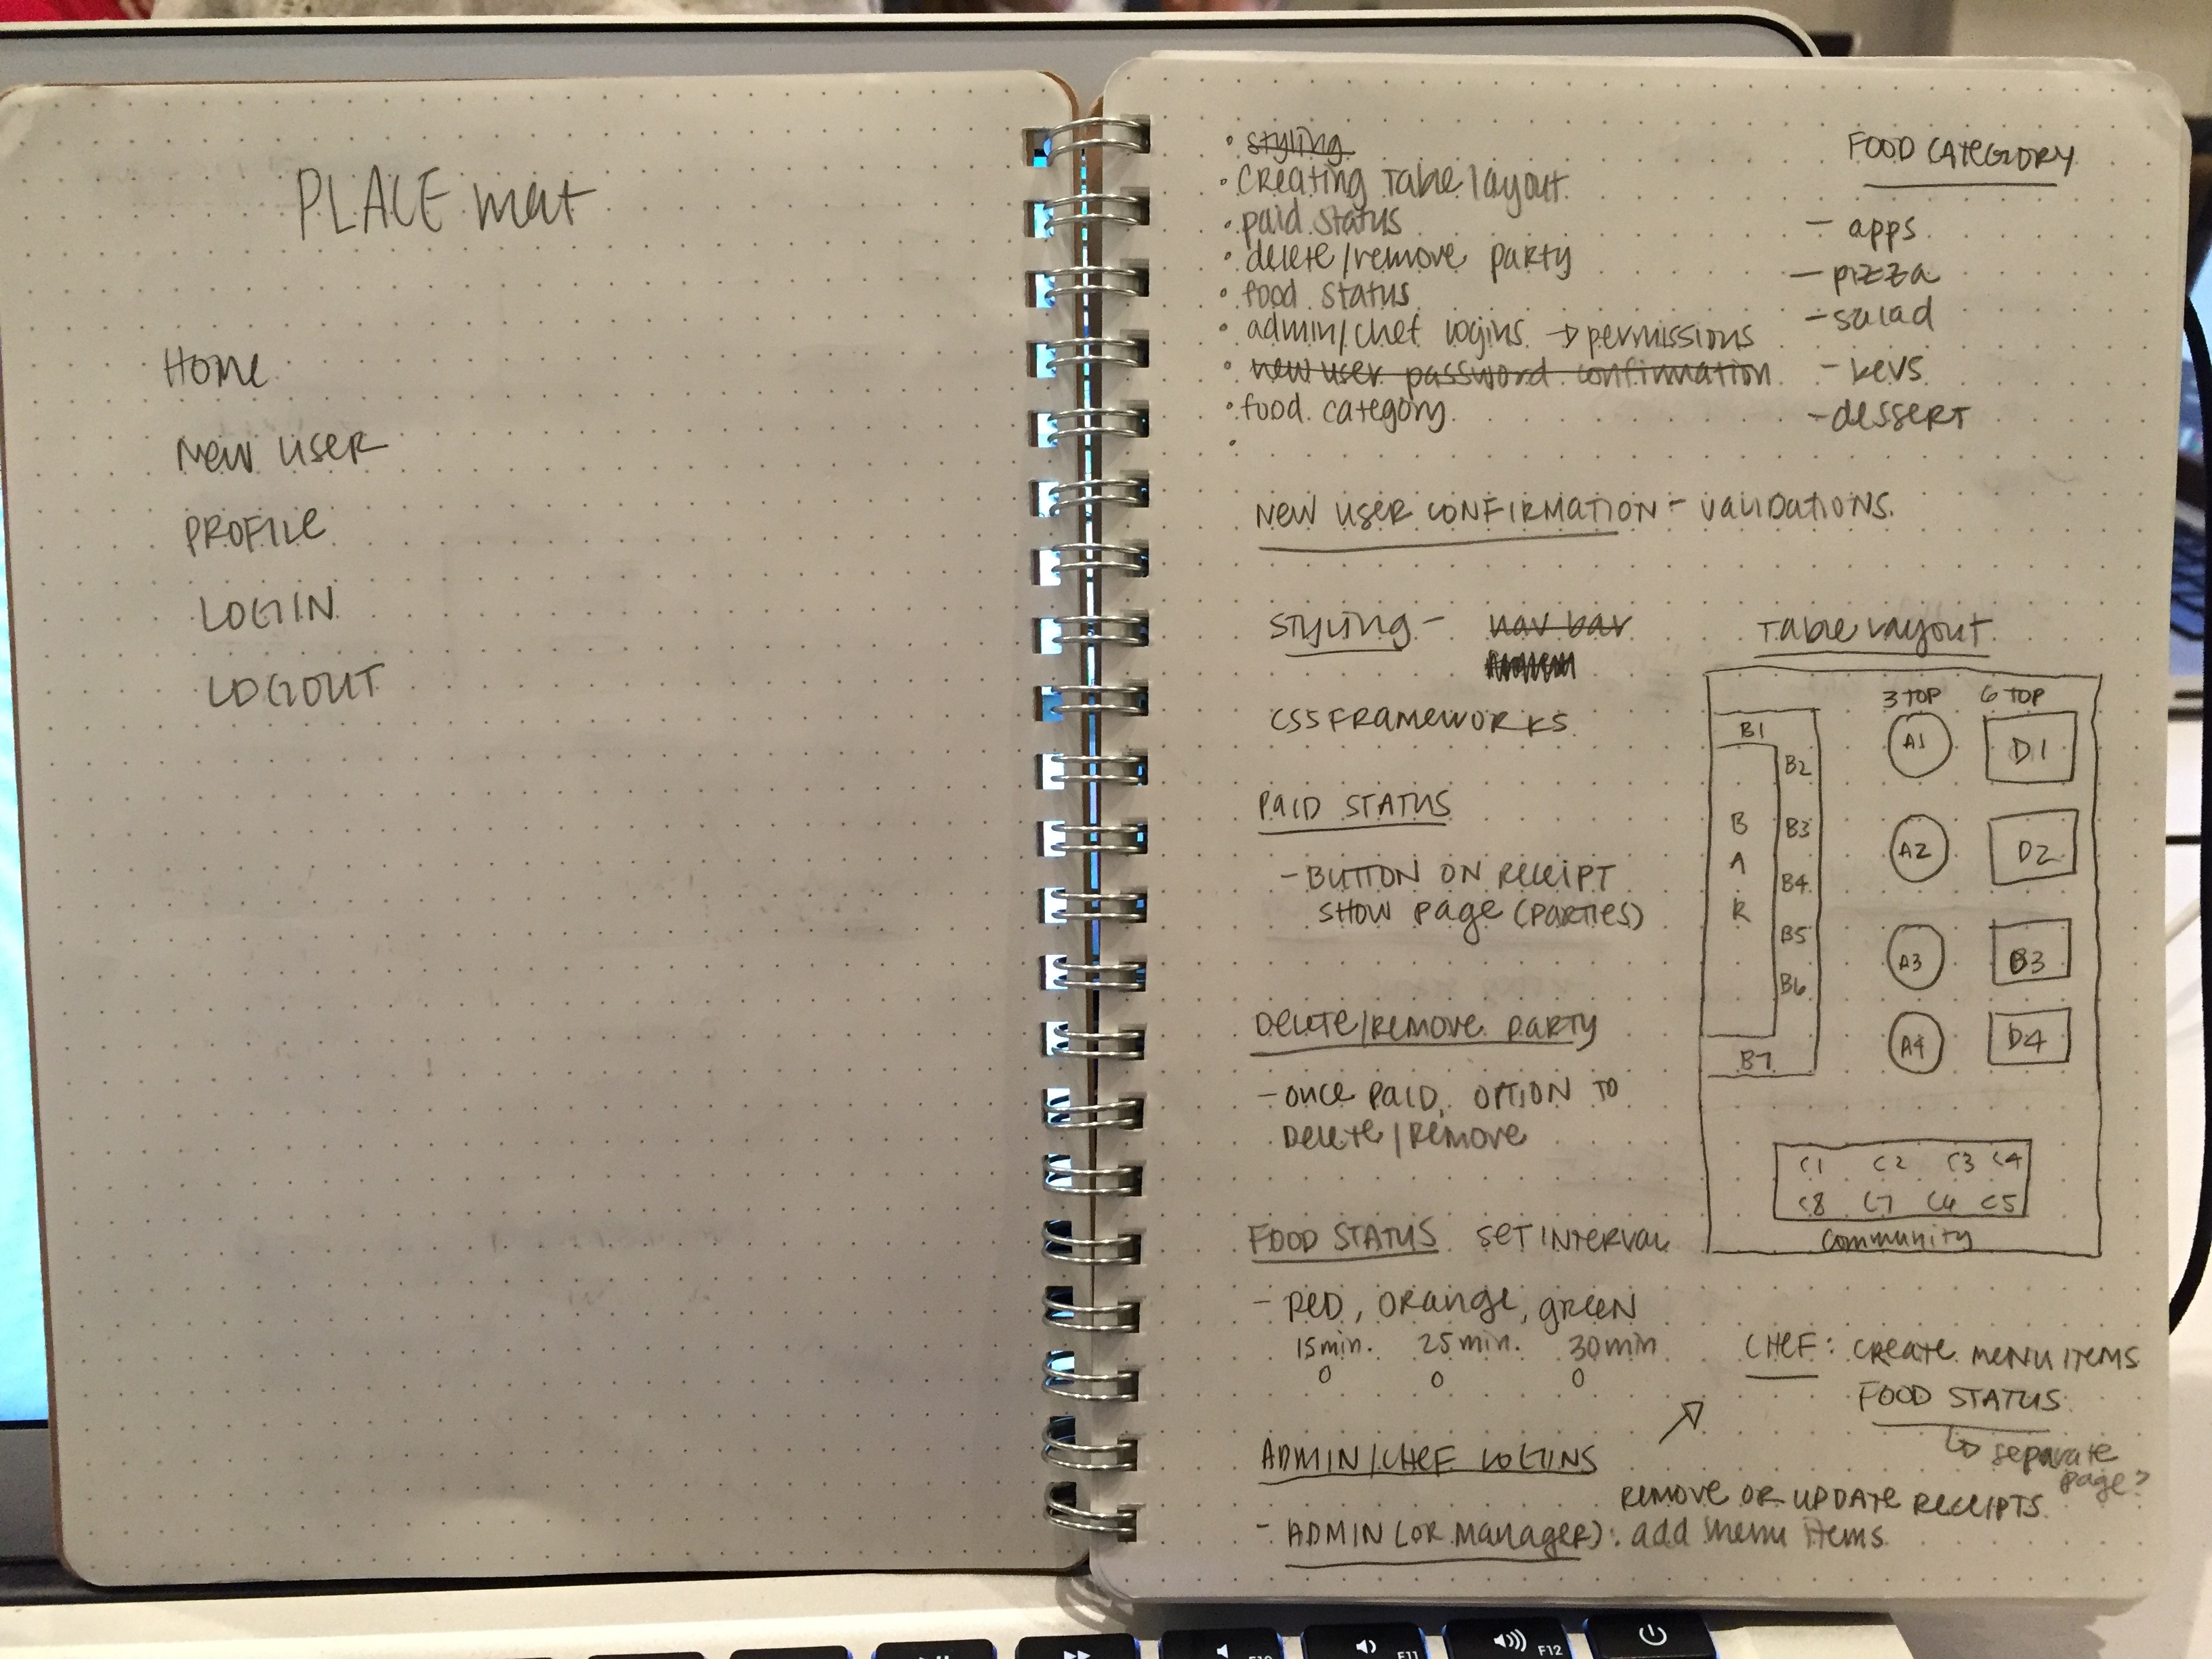 PLACE mat
Home
New User
PROFILE
LOGIN
LOGOUT
• styling
• Creating Table layout
• paid status
• delete/remove party
• food status
• admin/chef logins → permissions
• new user password confirmation
• food category
•
FOOD CATEGORY
- apps
- pizza
- salad
- kevs
- dessert
New User Confirmation - Validations
Styling - nav bar
CSS Frameworks
PAID STATUS
- BUTTON ON RECEIPT
SHOW page (PARTIES)
DELETE/REMOVE PARTY
- Once PAID, OPTION TO
Delete/Remove
FOOD STATUS SET INTERVAL
- RED, Orange, green
15min. 25min. 30min
0 0 0
ADMIN/CHEF LOGINS
- ADMIN (OR Manager): add menu items
REMOVE OR UPDATE RECEIPTS
Table Layout
3 TOP 6 TOP
B1
A1 D1
B2
BAR
B3
A2 D2
B4
B5
A3 B3
B6
A4 D4
B7
C1 C2 C3 C4
C8 C7 C6 C5
Community
CHEF: CREATE MENU ITEMS
FOOD STATUS
↳ separate
page?
F10 F11 F12